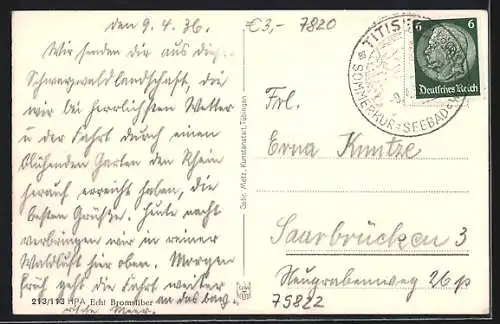 den 9. 4. 36.
€3,- 7820
Wir senden dir aus dies.
Schwarzwaldlandschaft, die
wir bei herrlichstem Wetter
u der Fahrt durch einen
blühenden Garten den Rhein
herauf erreicht haben, die
besten Grüße. Heute nacht
verbringen wir in reiner
Waldluft hier oben. Morgen
früh geht die Fahrt weiter
an das bay
rische Meer.
213/113 HPA Echt Bromsilber
Gebr. Metz, Kunstanstalt, Tübingen
TITISEE
SOMMERKUR=SEEBAD
6 6
Deutsches Reich
Frl.
Erna Kunitze
Saarbrücken 3
Neugrabenweg 26 p
75822